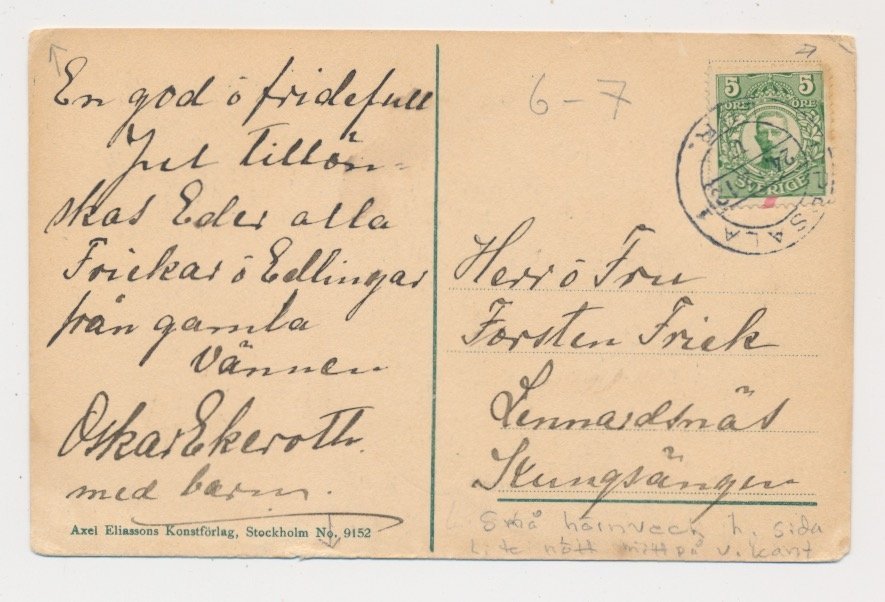 En god ö fridefull
Jul tillön-
skas Eder alla
Frickar ö Edlingar
från gamla
vännen
Oskar Ekeroth.
med barn.
Axel Eliassons Konstförlag, Stockholm No. 9152
6-7
5 5
ÖRE ÖRE
SVERIGE
UPSALA 1
24
Herr ö Fru
Torsten Frick
Lennardsnäs
Kungsängen
Små hörnveck h. sida
Lite nött mitt på v. kant